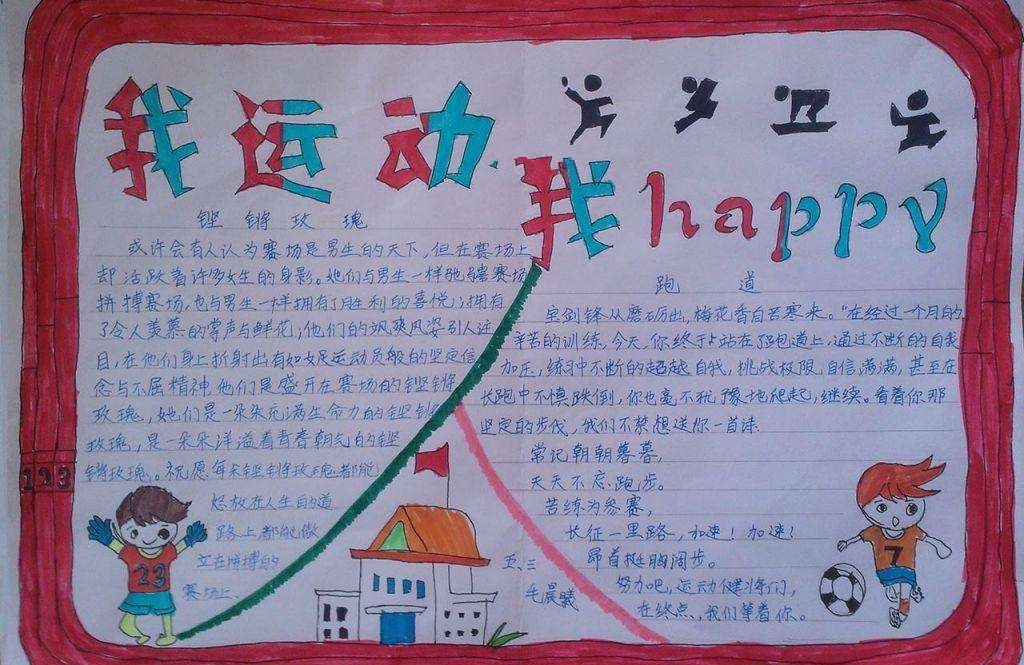 我运动
我happy
铿锵玫瑰
或许会有人认为赛场是男生的天下,但在赛场上
却活跃着许多女生的身影。她们与男生一样驰骋赛场
拼搏赛场,也与男生一样拥有了胜利的喜悦;拥有
了令人羡慕的掌声与鲜花;他们的飒爽风姿引人注
目,在他们身上折射出有如女足运动员般的坚定信
念与不屈精神,他们是盛开在赛场的铿锵
玫瑰,她们是一朵朵充满生命力的铿锵
玫瑰,是一朵朵洋溢着青春朝气的铿
锵玫瑰。祝愿每朵铿锵玫瑰都能
怒放在人生的道
路上都能傲
立在拼搏的
赛场上
跑道
宝剑锋从磨砺出,梅花香自苦寒来。"在经过一个月的
辛苦的训练,今天,你终于站在了跑道上,通过不断的自我
加压,练习中不断的超越自我,挑战极限,自信满满,甚至在
长跑中不慎跌倒,你也毫不犹豫地爬起,继续。看着你那
坚定的步伐,我们不禁想送你一首诗.
常记朝朝暮暮,
天天不忘跑步。
苦练为参赛,
长征一里路,加速!加速!
昂首挺胸阔步。
努力吧,运动健将们,
在终点,我们等着你。
五.三
毛晨曦
123
23
7